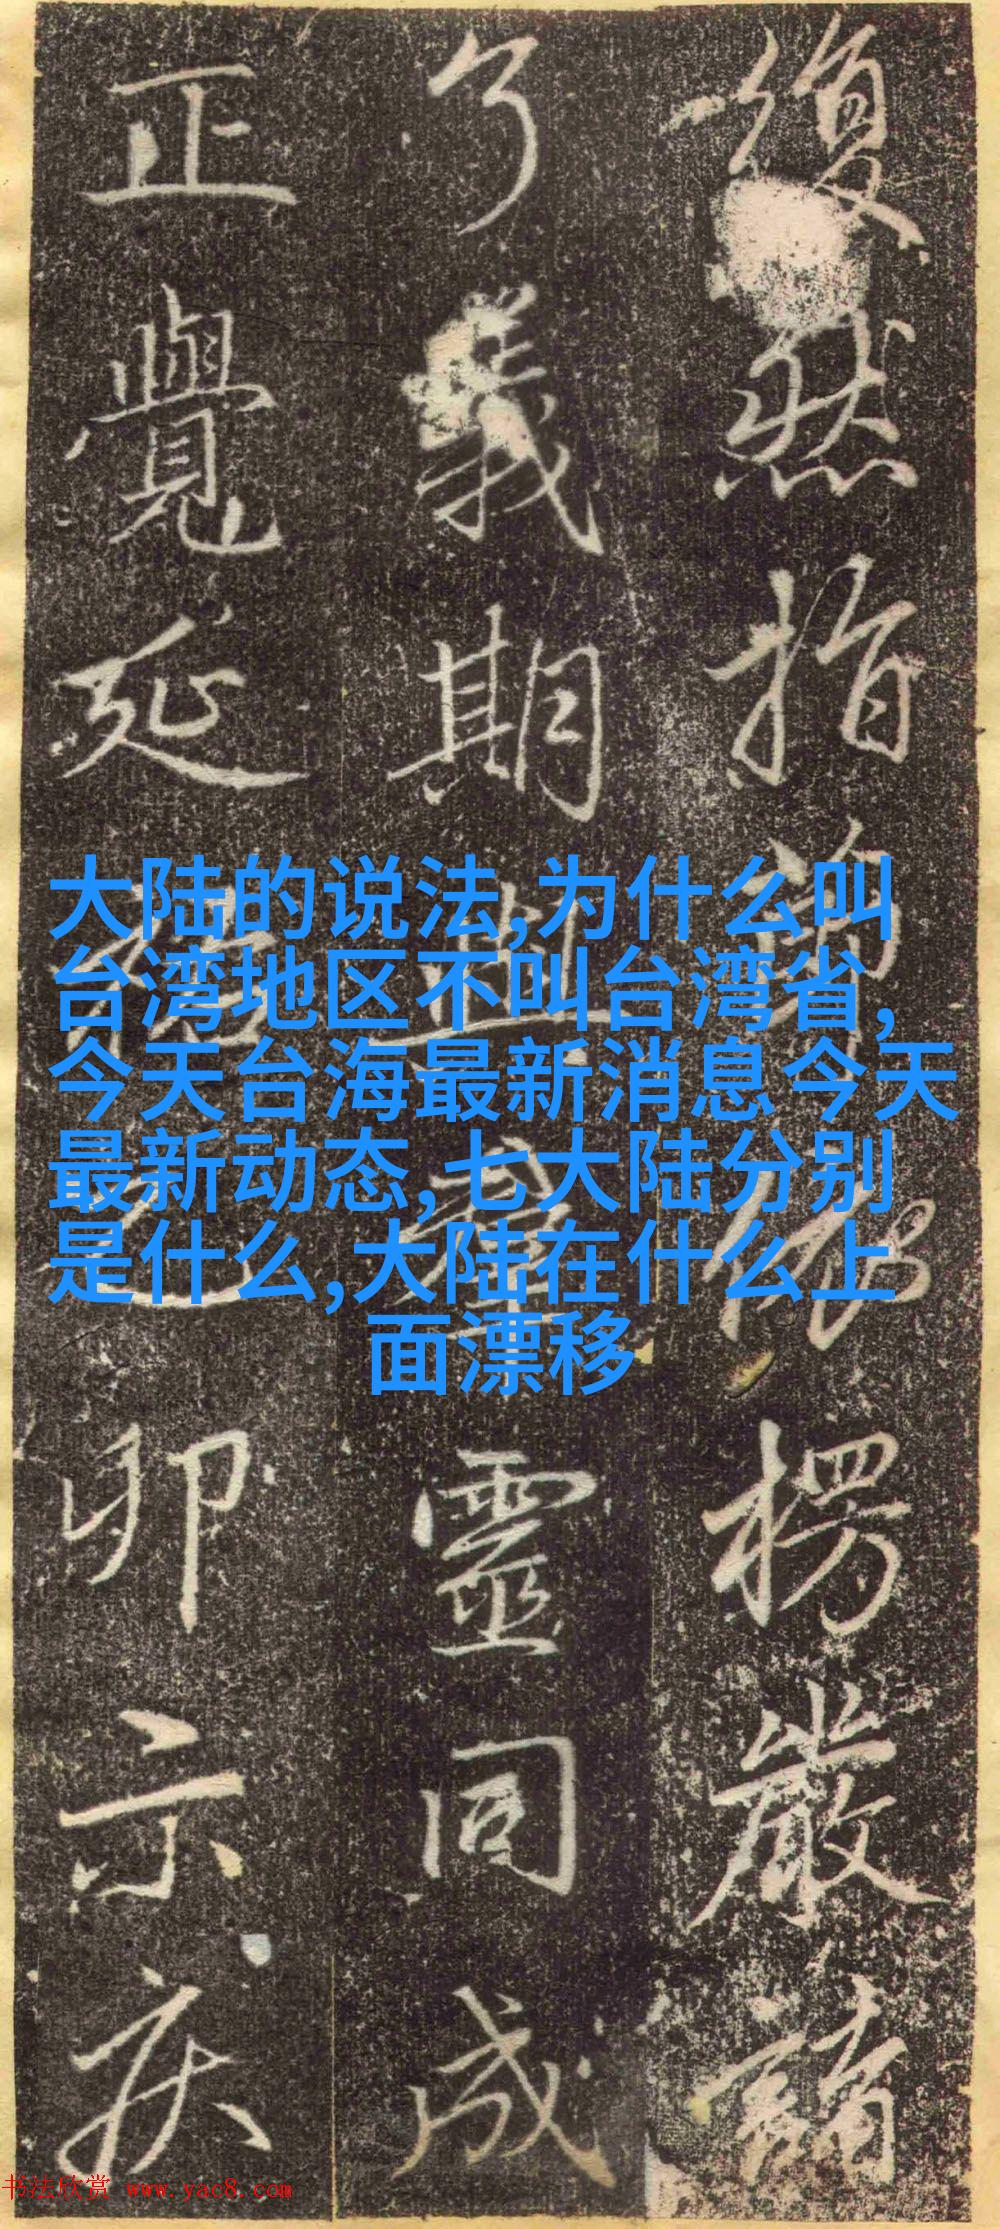 復然指
了義期
正覺延
卯示疾
靈同成
楞嚴
大陆的说法,为什么叫
台湾地区不叫台湾省,
今天台海最新消息今天
最新动态,七大陆分别
是什么,大陆在什么上
面漂移
书法欣赏 www.yac8.com